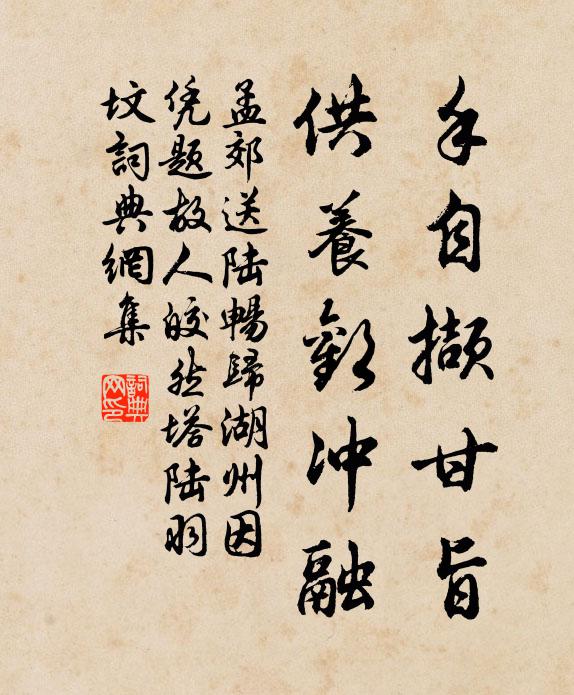 手自撷甘旨
供養歡沖融
孟郊送陆暢歸湖州因
凭題故人皎然塔陆羽
坟詞典網集
詞典
网印